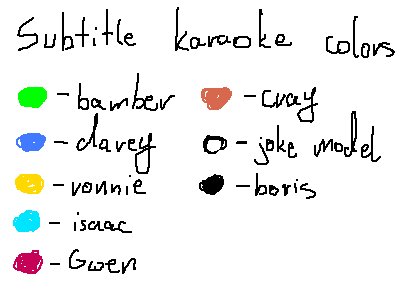 Subtitle karaoke colors
- bamber
- davey
- ronnie
- isaac
- Gwen
- cray
- joke model
- boris